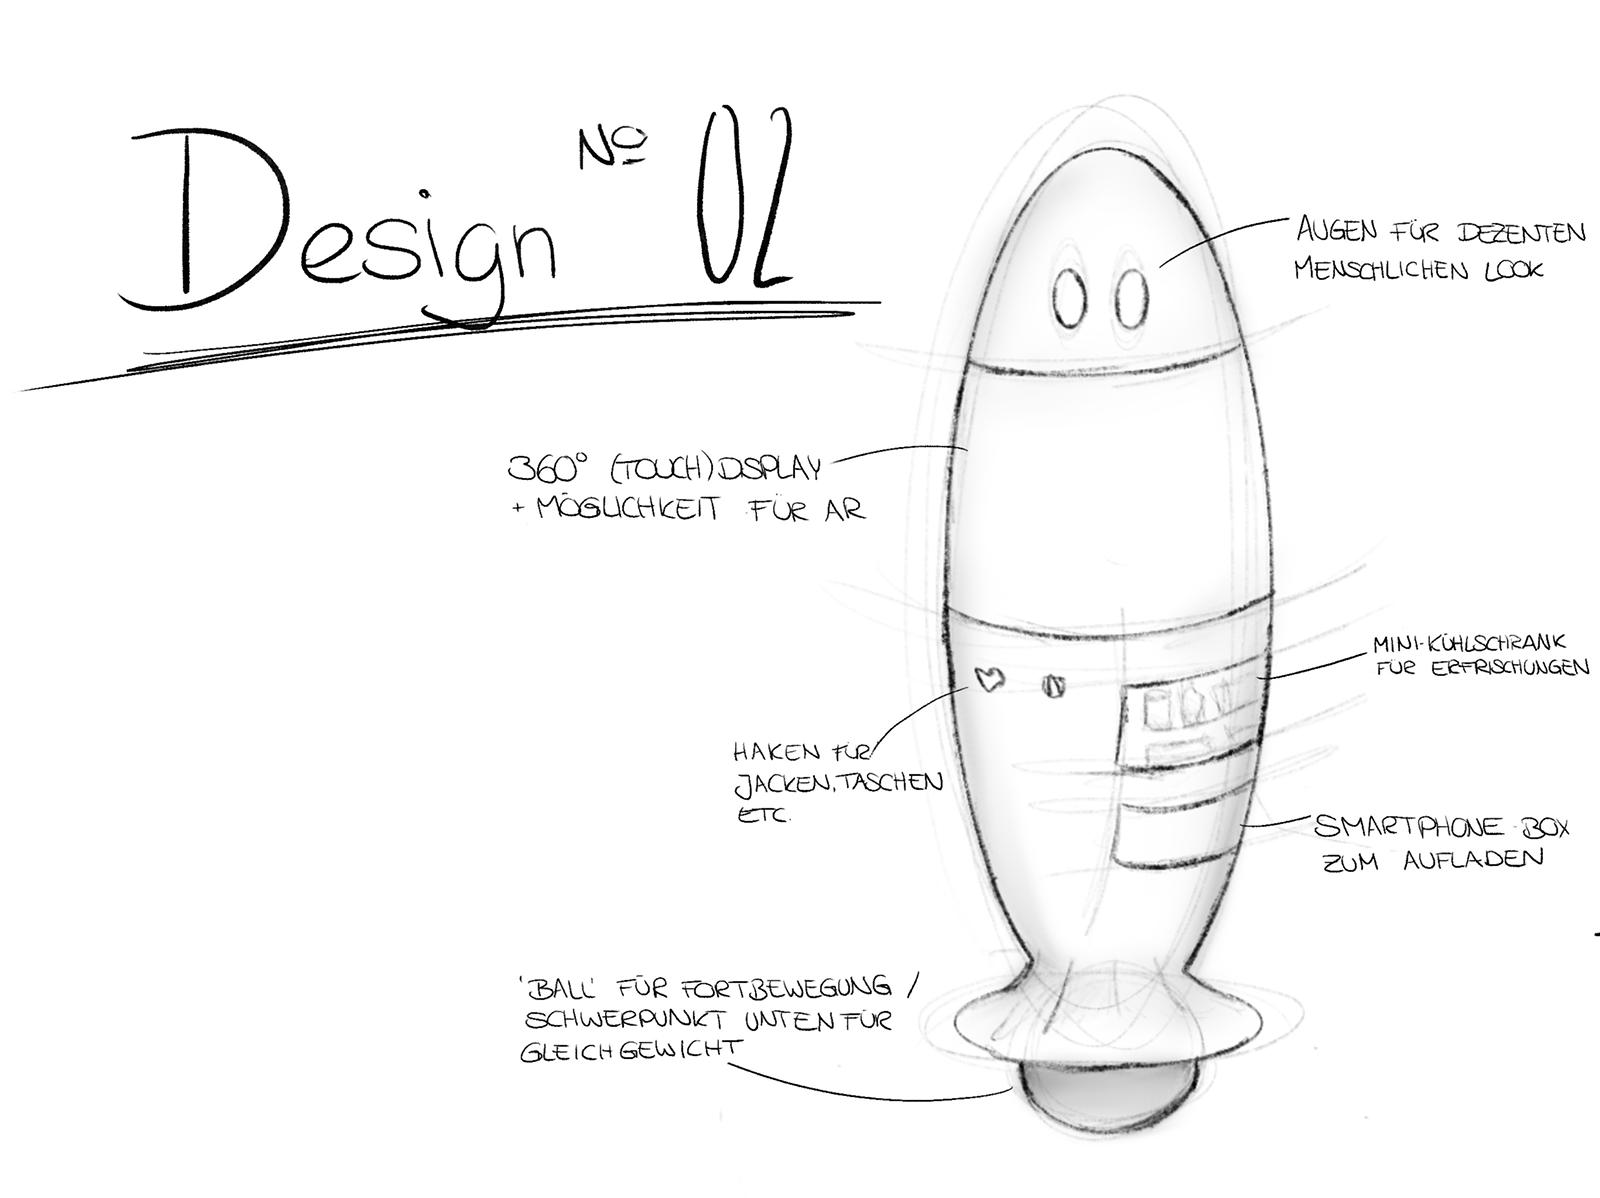 Design Nº 02
AUGEN FÜR DEZENTEN
MENSCHLICHEN LOOK
360° (TOUCH)DISPLAY
+ MÖGLICHKEIT FÜR AR
MINI-KÜHLSCHRANK
FÜR ERFRISCHUNGEN
HAKEN FÜR
JACKEN, TASCHEN
ETC.
SMARTPHONE-BOX
ZUM AUFLADEN
'BALL' FÜR FORTBEWEGUNG /
SCHWERPUNKT UNTEN FÜR
GLEICHGEWICHT